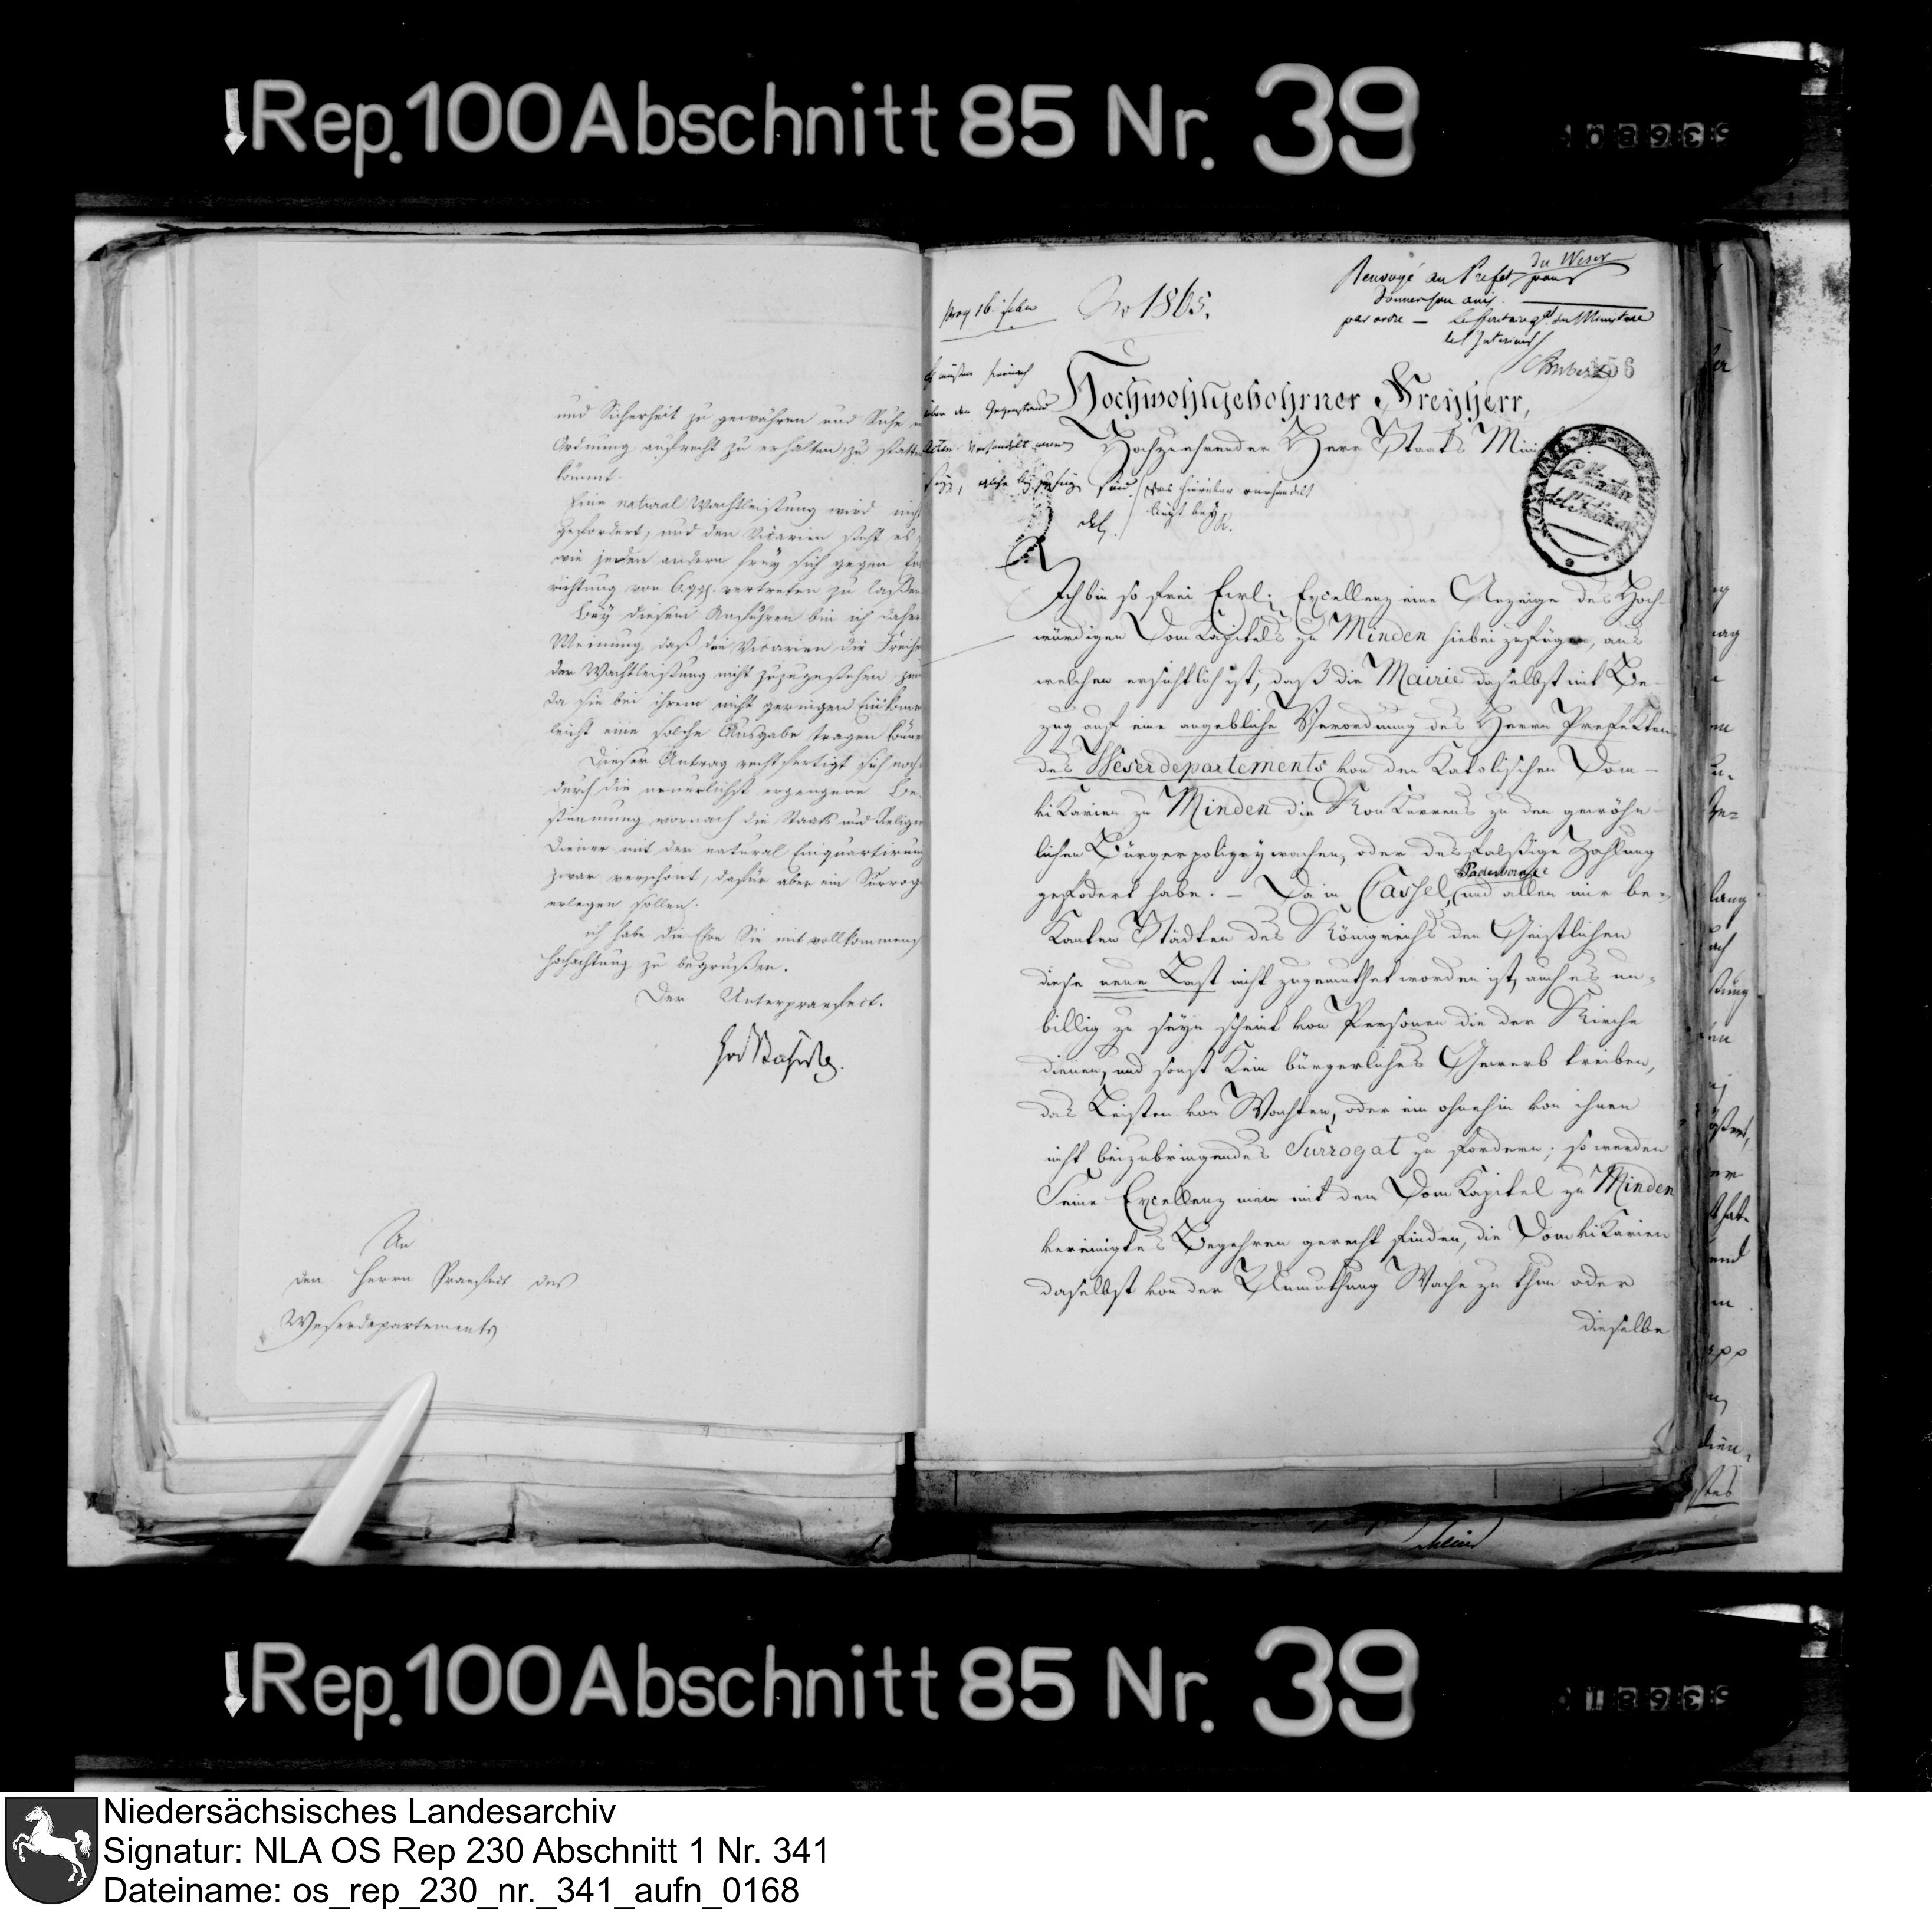 Rep. 100 Abschnitt 85 Nr. 39
und Sicherheit zu gewähren und Ruhe
Ordnung aufrecht zu erhalten, zu statten
kömmt.
Eine natural Wachtleistung wird nicht
gefordert, und den Vicarien steht es,
wie jeden andern frey sich gegen
richtung von 6 ggl. vertreten zu laßen.
Bey diesem Anführen bin ich daher
Meinung, daß den Vicarien die Freiheit
der Wachtleistung nicht zuzugestehen
da sie bei ihrem nicht geringen Einkommen
leicht eine solche Ausgabe tragen können
Dieser Antrag rechtfertigt sich noch
durch die neuerlichst ergangene Be-
stimmung wornach die Staats und Religions
diener mit der natural Einquartirung
zwar verschont, dafür aber ein Surrogat
erlegen sollen.
ich habe die Ehre Sie mit vollkommenster
Hochachtung zu begrüßen.
Der Unterpraefect.
An
den Herrn Praefect des
Weserdepartements
No 1865.
Renvoyé au Prefet du Weser pour
donner son avis.
par ordre — le Secretaire gl. du Ministere
de l'Interieur
156
über den Gegenstand
Acten verhandelt
Das hierüber verhandelt
liegt bey
Hochwohlgebohrner Freyherr,
Hochzuehrender Herr Staats Mini
Ich bin so frei Eurl. Excellenz eine Anzeige des Hoch-
würdigen Domkapitels zu Minden hiebei zufügen, aus
welchen ersichtlich ist, daß die Mairie daselbst mit Be-
zug auf eine angebliche Verordnung des Herrn Prefekten
des Weserdepartements von den Katolischen Dom-
vikarien zu Minden die Konkurrens zu den gewöhn-
lichen Bürgerpolizeywachen, oder desfalsige Zahlung
gefodert habe. — Da in Cassel, Paderborn und allen mir be-
kanten Städten des Königreichs den Geistlichen
diese neue Last nicht zugemuthet worden ist, auch es un-
billig zu seyn scheint von Personen die der Kirche
dienen, und sonst kein bürgerliches Gewerb treiben,
das Leisten von Wachten, oder ein ohnehin von ihnen
nicht beizubringendes Surrogat zu fordern; so werden
Seine Excellenz mein mit dem Domkapitel zu Minden
vereinigtes Begehren gerecht finden, die Domvikarien
daselbst von der Zumuthung Wache zu thun oder
dieselbe
Rep. 100 Abschnitt 85 Nr. 39
Niedersächsisches Landesarchiv
Signatur: NLA OS Rep 230 Abschnitt 1 Nr. 341
Dateiname: os_rep_230_nr._341_aufn_0168